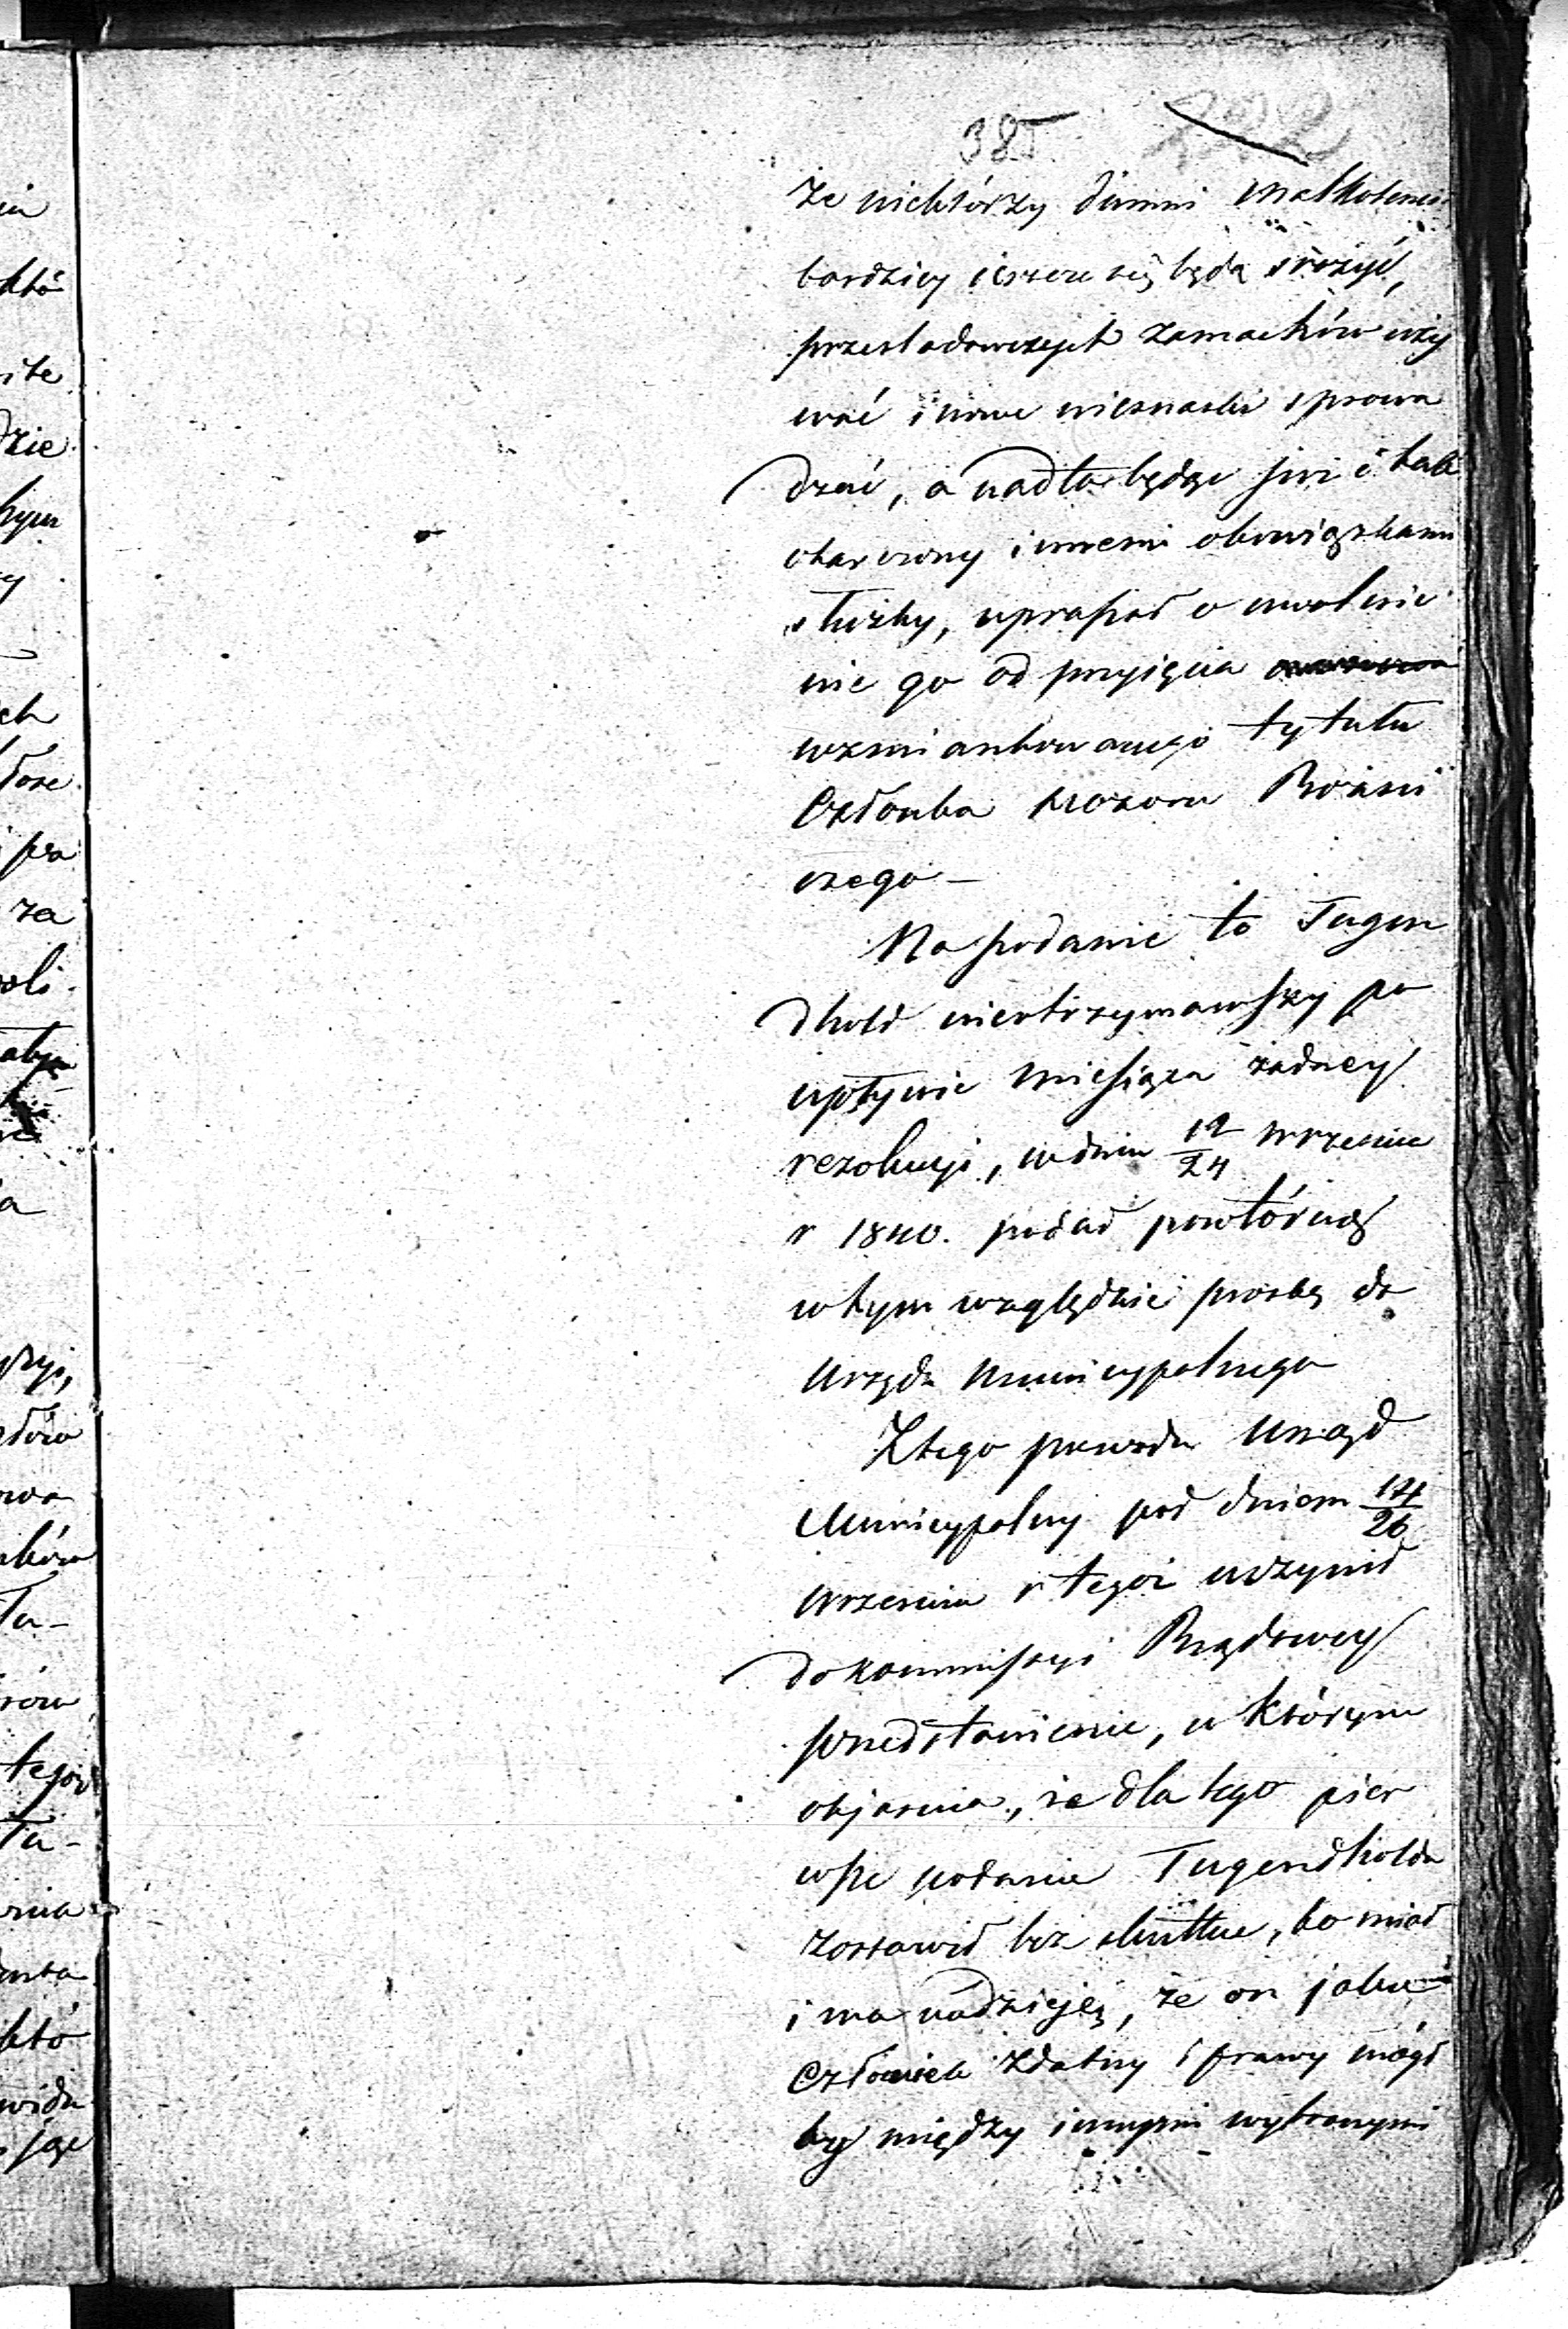 385
że niektórzy dumni małkotenci
bardziey ieszcze się będą srożyć,
prześladowczych zamachów uży
wać i nowe niesnaski sprowa
dzać, a nadto będąc już i tak
obarczony innemi obowiązkami
służby, upraszał o uwolnie
nie go od przyięcia
wzmiankowanego tytułu
Członka Dozoru Bożni
czego –
Na podanie to Tugen
dhold nieotrzymawszy po
upływie miesiąca żadney
rezolucyi, w dniu 12/24 września
r 1840. podał powtórną
w tym względzie prośbę do
Urzędu Municypalnego
Z tego powodu Urząd
Municypalny pod dniem 14/26
września r tegoż uczynił
do Kommissyi Rządowey
przedstawienie, w którym
objaśnia, że dla tego pier
wsze podanie Tugendholda
zostawił bez skutku, bo miał
i ma nadzieję, że on jako
Człowiek zdatny i prawy mógł
by między innymi wybranymi
któ
dzie
hym
ch
pra
za
a
tegoż
Tu-
któ